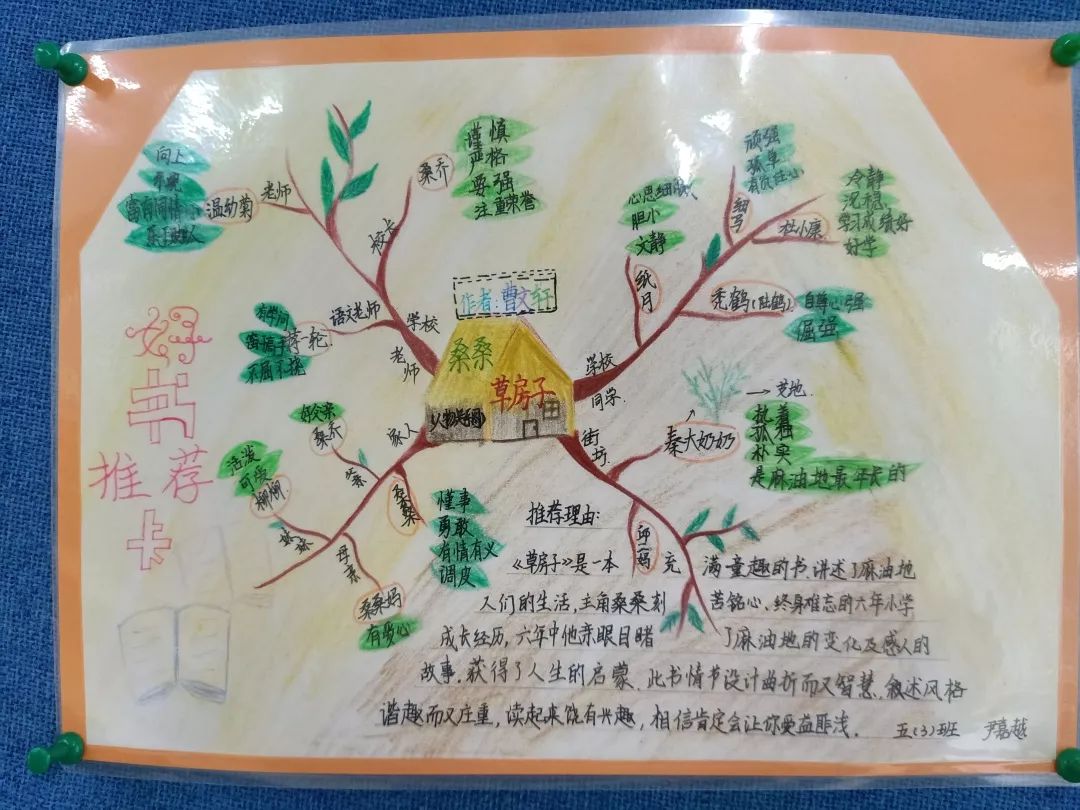 好书
推荐
卡
作者:曹文轩
桑桑
草房子
人物关系图
学校
老师
校长
桑乔
谨慎
严格
要强
注重荣誉
老师
温幼菊
向上
富有同情心
语文老师
蒋一轮
有学问
不屈不挠
家人
父亲
桑乔
妹妹
柳柳
活泼
可爱
母亲
桑桑妈
有爱心
桑桑
懂事
勇敢
有情有义
调皮
学校
同学
纸月
心思细腻
胆小
文静
细马
顽强
孤单
有责任心
杜小康
冷静
沉稳
学习成绩好
好学
秃鹤(陆鹤)
自尊心强
倔强
街坊
秦大奶奶
→艾地
执着
孤独
朴实
是麻油地最年长的
邱二妈
推荐理由:
《草房子》是一本充满童趣的书.讲述了麻油地
人们的生活,主角桑桑刻苦铭心、终身难忘的六年小学
成长经历,六年中他亲眼目睹了麻油地的变化及感人的
故事.获得了人生的启蒙.此书情节设计曲折而又智慧、叙述风格
谐趣而又庄重,读起来饶有兴趣,相信肯定会让你受益匪浅.
五(3)班 尹嘉越